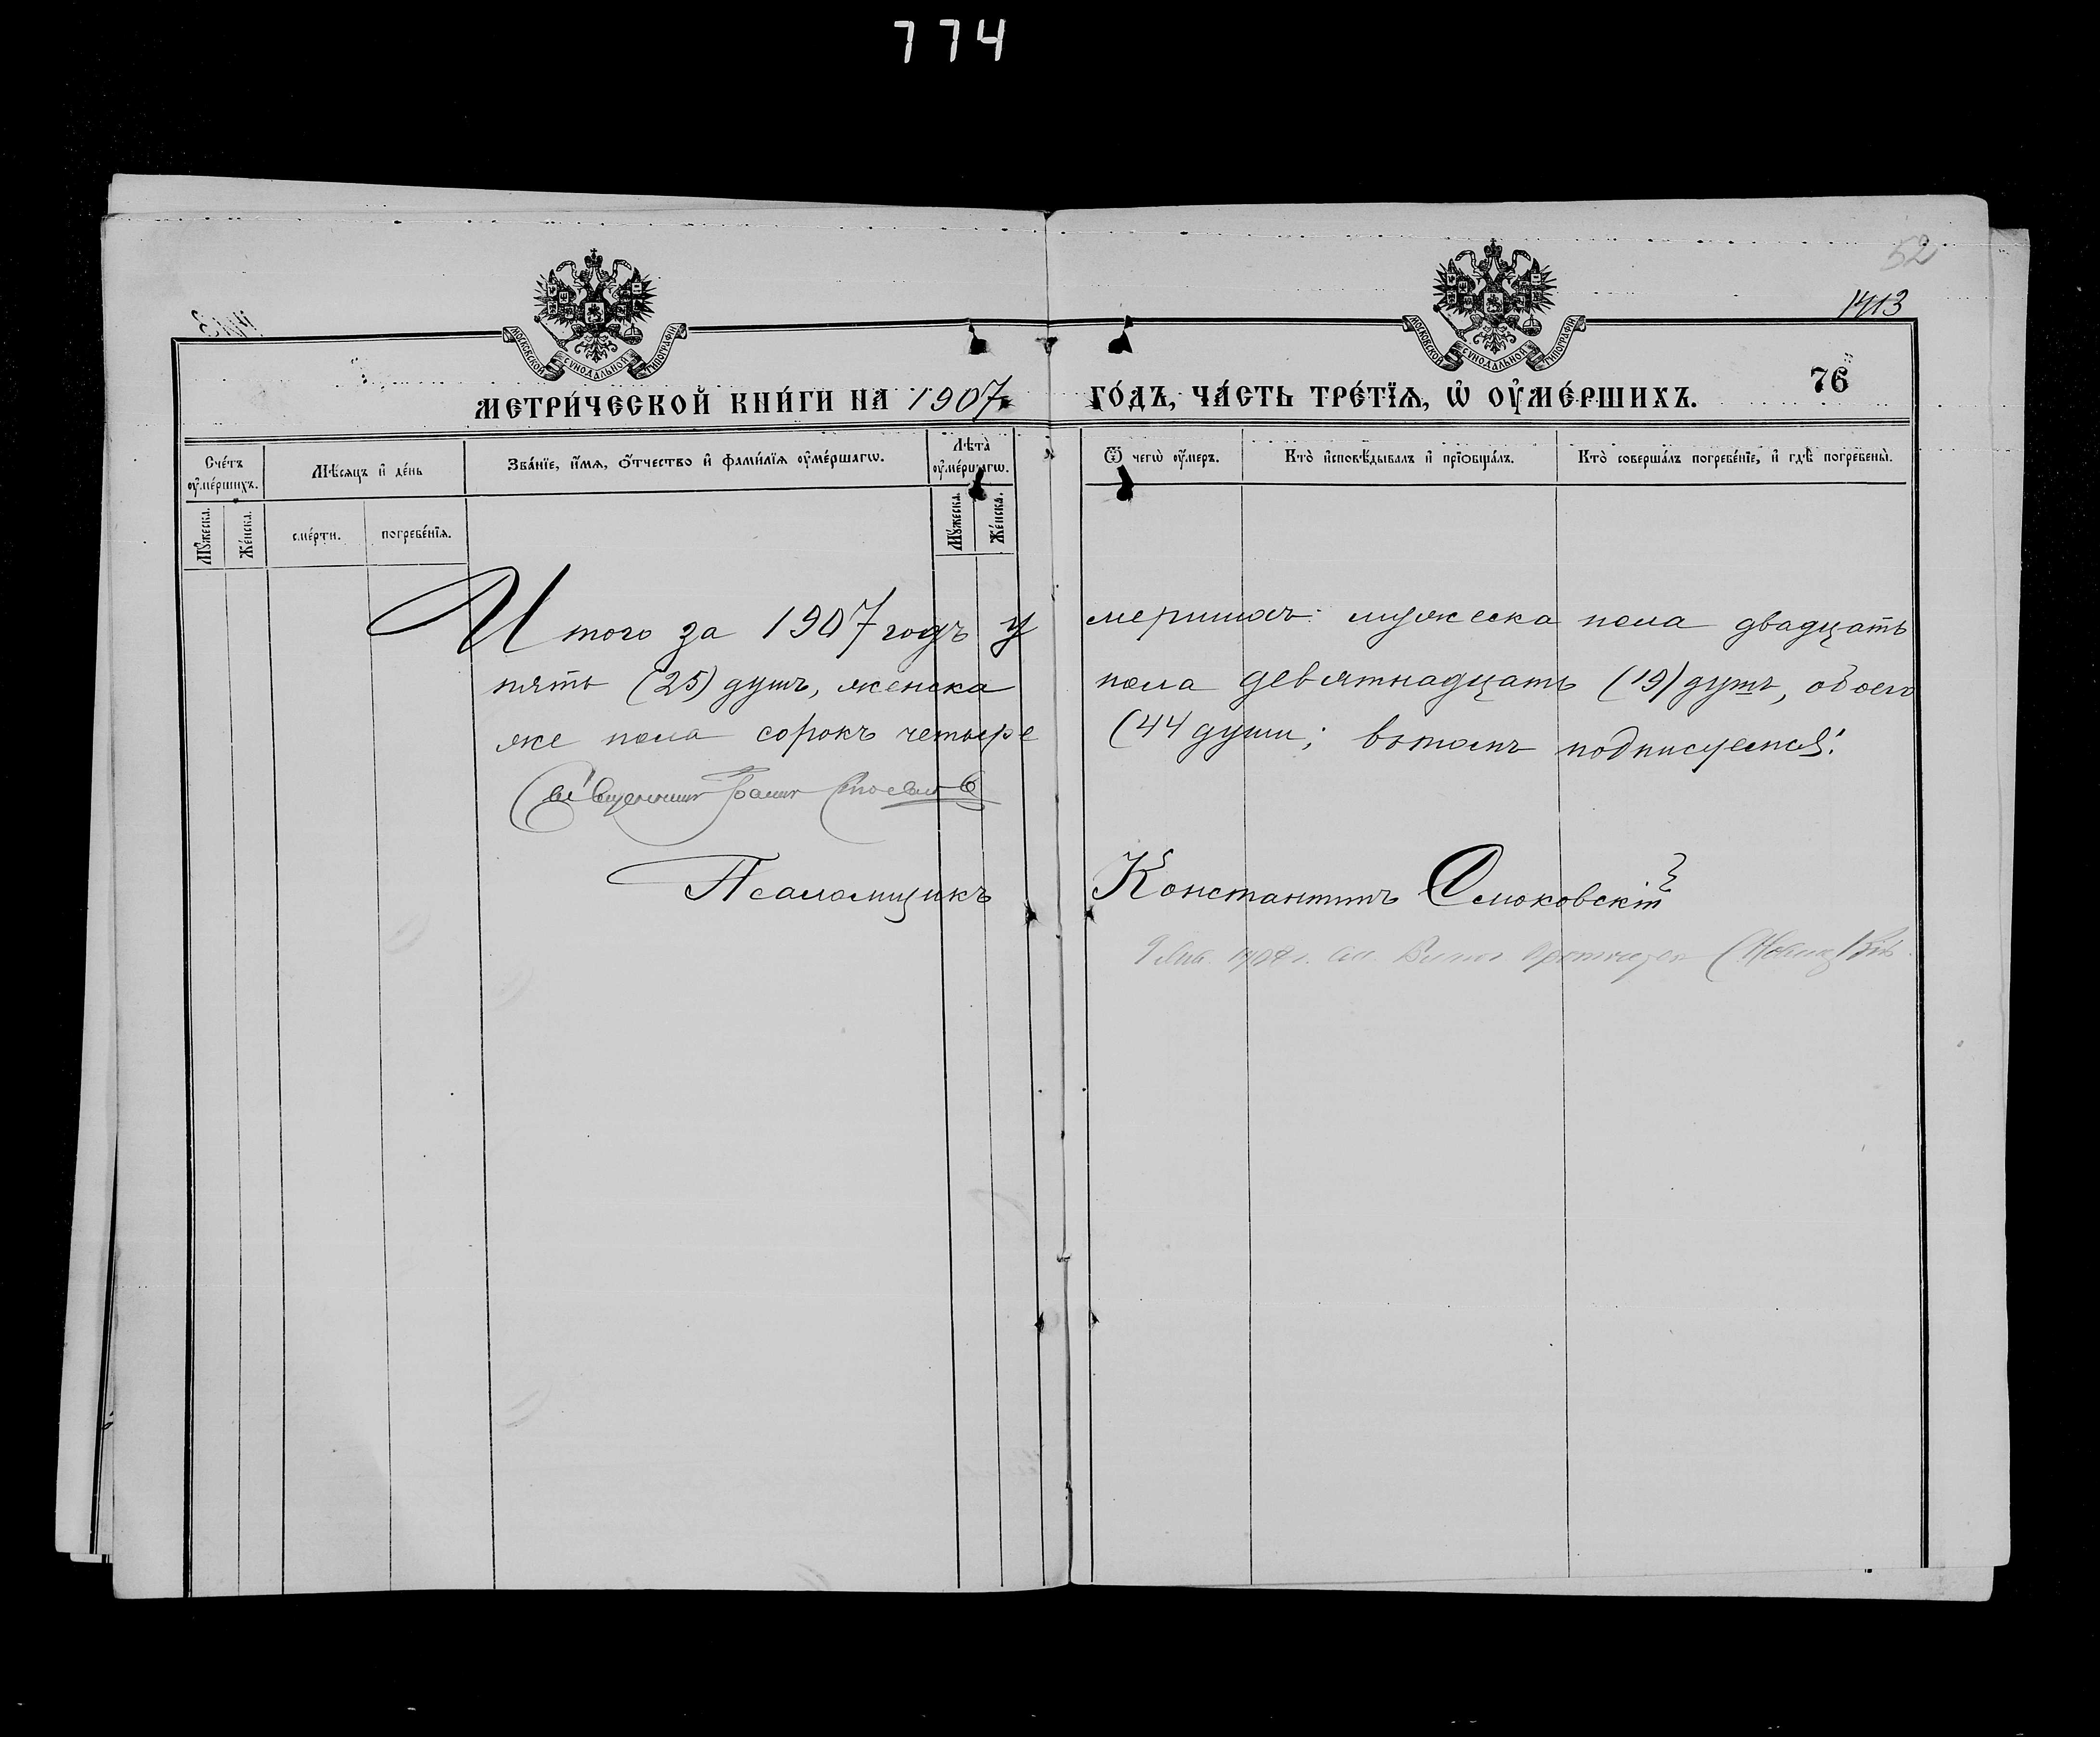 774
52
1413
МОСКОВСКОЙ СѴНОДАЛЬНОЙ ТИПОГРАФІИ
МОСКОВСКОЙ СѴНОДАЛЬНОЙ ТИПОГРАФІИ
76
МЕТРИ́ЧЕСКОЙ КНИ́ГИ НА 1907 ГО́ДЪ, ЧА́СТЬ ТРЕ́ТЇѦ, Ѡ҆ ОУ҆МЕ́РШИХЪ.
Сче́тъ оу҆ме́ршихъ.
Мѣ́сѧцъ и҆ де́нь
Зва́нїе, и҆́мѧ, ѻ҆́тчество и҆ фами́лїѧ оу҆ме́ршагѡ.
Лѣ́та оу҆ме́ршагѡ.
Ѿ чегѡ̀ оу҆́меръ.
Кто̀ и҆сповѣ́дывалъ и҆ прїѡбща́лъ.
Кто̀ соверша́лъ погребе́нїе, и҆ гдѣ̀ погребены̀.
Мꙋ́жеска.
Же́нска.
сме́рти.
погребе́нїѧ.
Мꙋ́жеска.
Же́нска.
Итого за 1907 годъ умершихъ: мужеска пола двадцать
пять (25) душъ, женска пола девятнадцать (19) душъ, обоего
же пола сорокъ четыре (44 души; въ томъ подписуемся:
Священникъ Іоаннъ
Псаломщикъ Константинъ Смоковскій